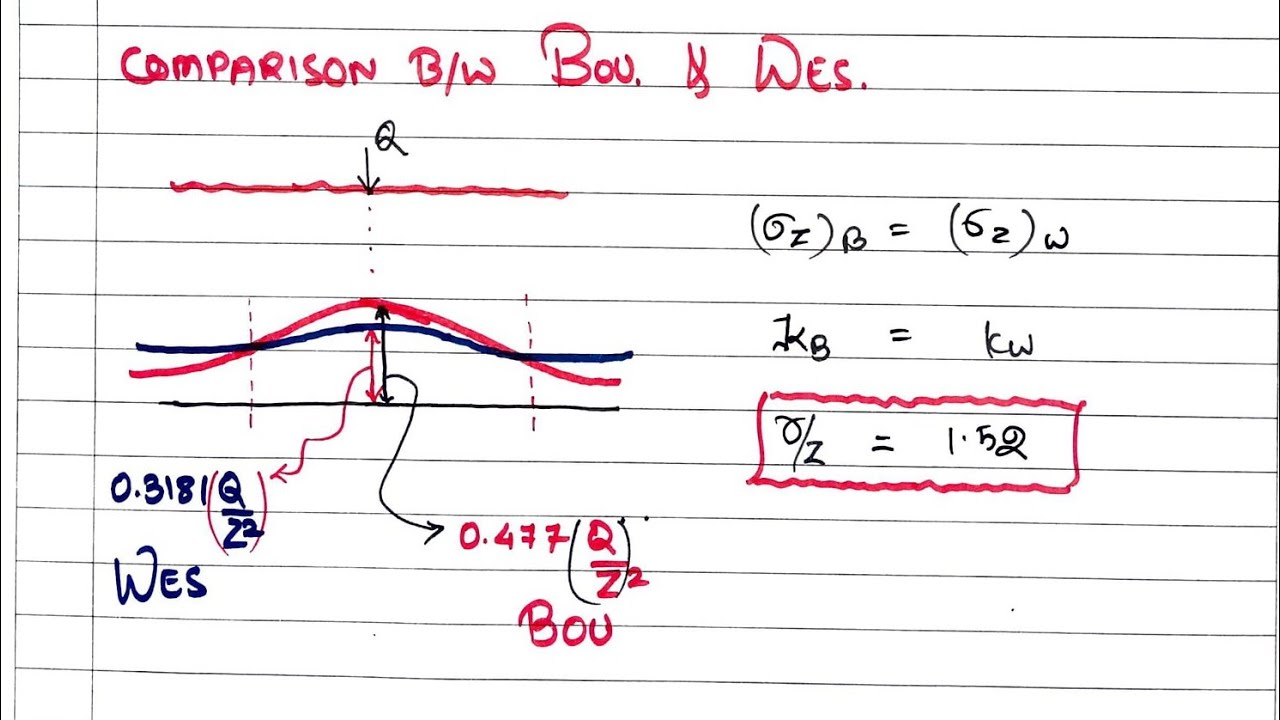 COMPARISON B/W BOU. & WES.
Q
(σz)B = (σz)W
kB = kW
r/z = 1.52
0.3181(Q/Z²)
0.477(Q/Z)²
WES
BOU